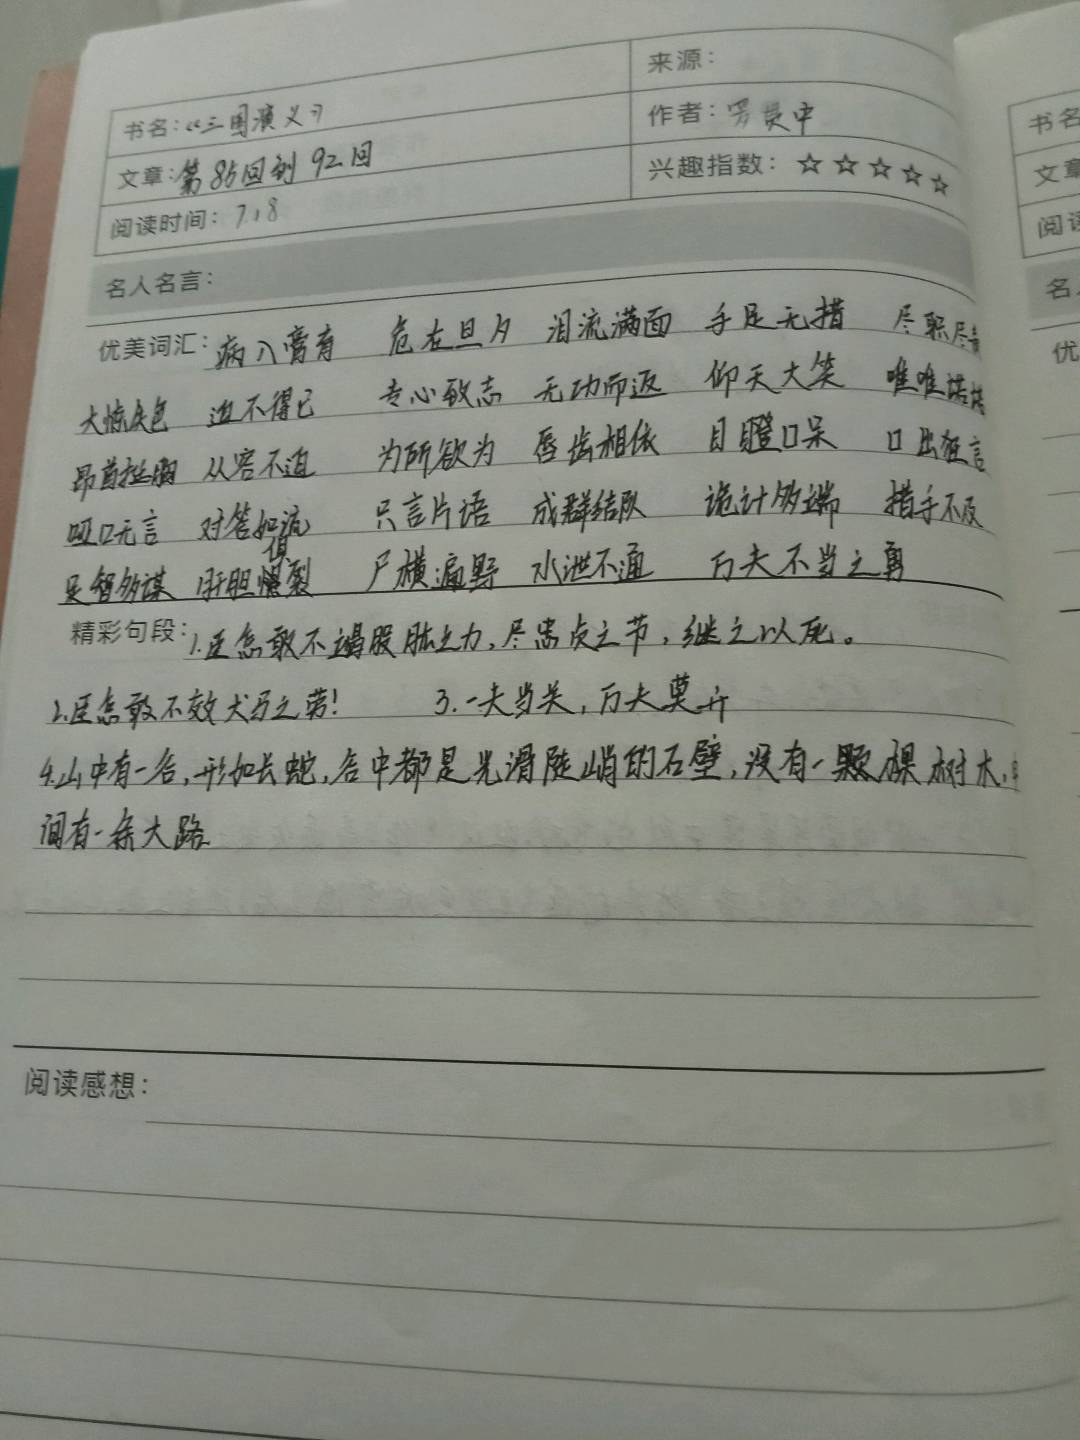 来源：
书名：《三国演义》
作者：罗贯中
文章：第85回到92回
兴趣指数：☆☆☆☆☆
阅读时间：7.18
名人名言：
优美词汇：病入膏肓 危在旦夕 泪流满面 手足无措 尽职尽责
大惊失色 迫不得已 专心致志 无功而返 仰天大笑 唯唯诺诺
昂首挺胸 从容不迫 为所欲为 唇齿相依 目瞪口呆 口出狂言
哑口无言 对答如流 只言片语 成群结队 诡计多端 措手不及
足智多谋 肝胆俱裂 尸横遍野 水泄不通 万夫不当之勇
精彩句段：1.臣怎敢不竭股肱之力，尽忠贞之节，继之以死。
2.臣怎敢不效犬马之劳！ 3.一夫当关，万夫莫开
4.山中有一谷，形如长蛇，谷中都是光滑陡峭的石壁，没有一棵树木，
间有一条大路
阅读感想：
书名
文章
阅读
名人
优